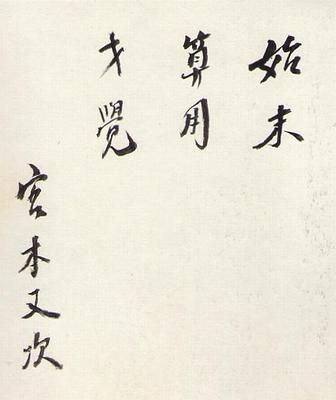 始末
算用
才覺
宮本又次